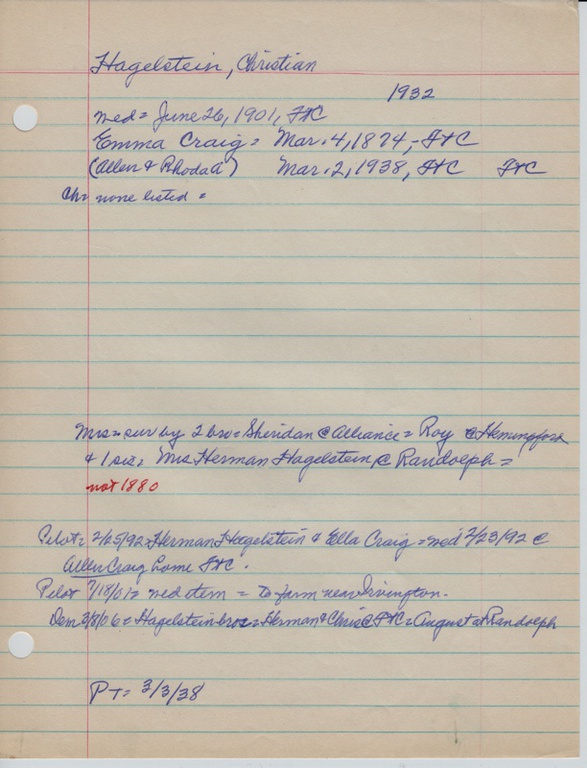 Hagelstein, Christian
1932
wed = June 26, 1901, Ft C
Emma Craig = Mar. 4, 1874, - Ft C
(Allen & Rhoda A) Mar. 2, 1938, Ft C Ft C
Ch = none listed =
Mrs = sur by 2 bro = Sheridan @ Alliance = Roy @ Hemingford
& 1 sis = Mrs Herman Hagelstein @ Randolph =
not 1880
Pilot = 2/25/92 = Herman Hagelstein & Ella Craig = wed 2/23/92 @
Allen Craig home Ft C.
Pilot 7/18/01 = wed item = to farm near Irvington.
Dem 3/8/06 = Hagelstein bros = Herman & Chris @ Ft C = August at Randolph
PT = 3/3/38